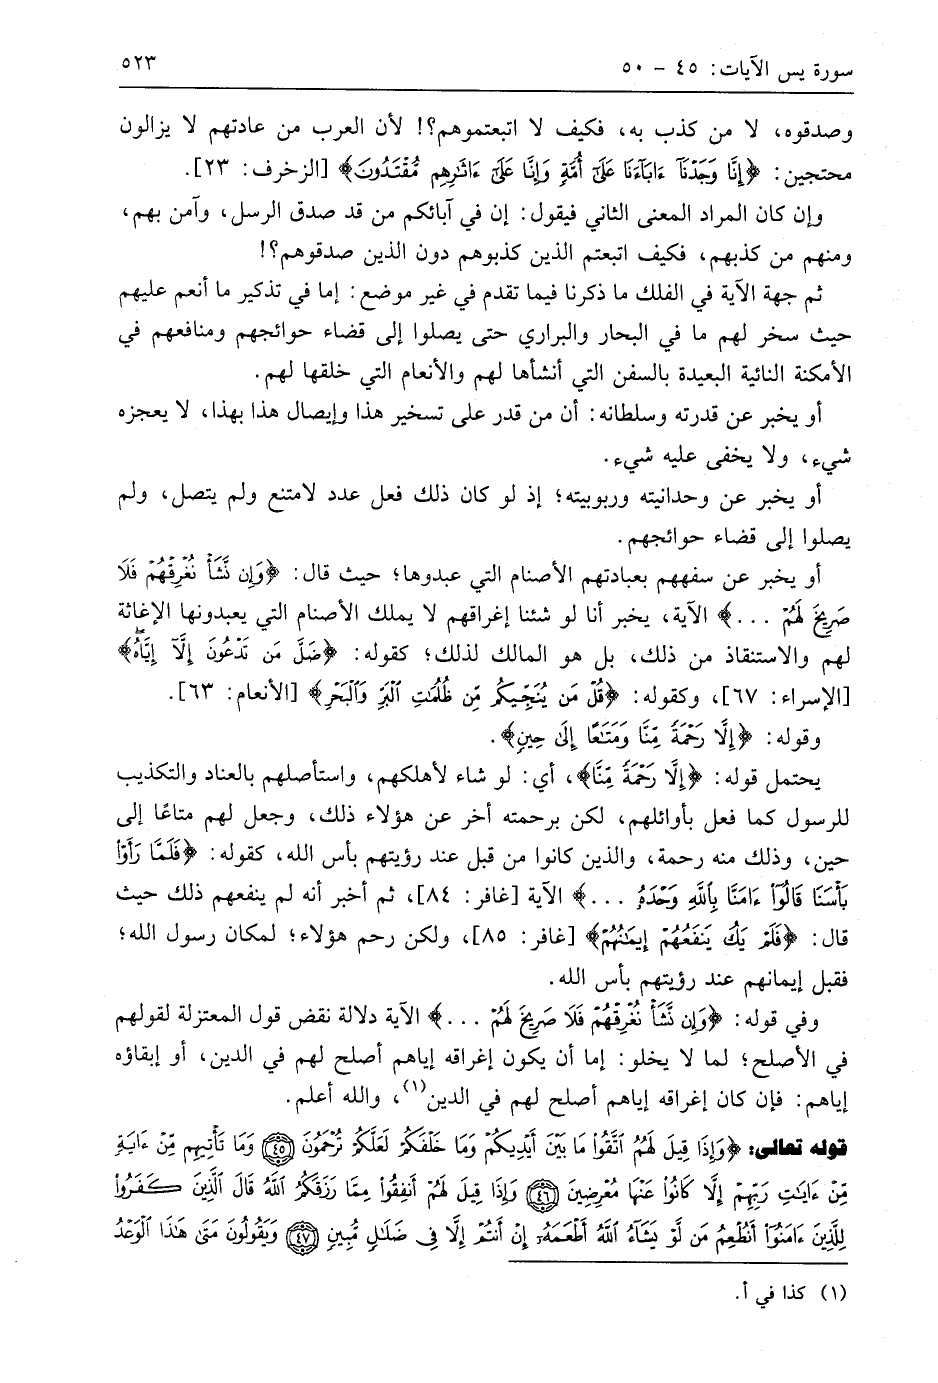 سورة يس الآيات: ٤٥ - ٥٠ ٥٢٣
وصدقوه، لا من كذب به، فكيف لا اتبعتموهم؟! لأن العرب من عادتهم لا يزالون
محتجين: ﴿إِنَّا وَجَدْنَآ ءَابَآءَنَا عَلَىٰٓ أُمَّةٍ وَإِنَّا عَلَىٰٓ ءَاثَٰرِهِم مُّقْتَدُونَ﴾ [الزخرف: ٢٣].
وإن كان المراد المعنى الثاني فيقول: إن في آبائكم من قد صدق الرسل، وآمن بهم،
ومنهم من كذبهم، فكيف اتبعتم الذين كذبوهم دون الذين صدقوهم؟!
ثم جهة الآية في الفلك ما ذكرنا فيما تقدم في غير موضع: إما في تذكير ما أنعم عليهم
حيث سخر لهم ما في البحار والبراري حتى يصلوا إلى قضاء حوائجهم ومنافعهم في
الأمكنة النائية البعيدة بالسفن التي أنشأها لهم والأنعام التي خلقها لهم.
أو يخبر عن قدرته وسلطانه: أن من قدر على تسخير هذا وإيصال هذا بهذا، لا يعجزه
شيء، ولا يخفى عليه شيء.
أو يخبر عن وحدانيته وربوبيته؛ إذ لو كان ذلك فعل عدد لامتنع ولم يتصل، ولم
يصلوا إلى قضاء حوائجهم.
أو يخبر عن سفههم بعبادتهم الأصنام التي عبدوها؛ حيث قال: ﴿وَإِن نَّشَأْ نُغْرِقْهُمْ فَلَا
صَرِيخَ لَهُمْ ...﴾ الآية، يخبر أنا لو شئنا إغراقهم لا يملك الأصنام التي يعبدونها الإغاثة
لهم والاستنقاذ من ذلك، بل هو المالك لذلك؛ كقوله: ﴿ضَلَّ مَن تَدْعُونَ إِلَّآ إِيَّاهُ﴾
[الإسراء: ٦٧]، وكقوله: ﴿قُلْ مَن يُنَجِّيكُم مِّن ظُلُمَٰتِ ٱلْبَرِّ وَٱلْبَحْرِ﴾ [الأنعام: ٦٣].
وقوله: ﴿إِلَّا رَحْمَةً مِّنَّا وَمَتَٰعًا إِلَىٰ حِينٍ﴾.
يحتمل قوله: ﴿إِلَّا رَحْمَةً مِّنَّا﴾، أي: لو شاء لأهلكهم، واستأصلهم بالعناد والتكذيب
للرسول كما فعل بأوائلهم، لكن برحمته أخر عن هؤلاء ذلك، وجعل لهم متاعًا إلى
حين، وذلك منه رحمة، والذين كانوا من قبل عند رؤيتهم بأس الله، كقوله: ﴿فَلَمَّا رَأَوْا۟
بَأْسَنَا قَالُوٓا۟ ءَامَنَّا بِٱللَّهِ وَحْدَهُۥ ...﴾ الآية [غافر: ٨٤]، ثم أخبر أنه لم ينفعهم ذلك حيث
قال: ﴿فَلَمْ يَكُ يَنفَعُهُمْ إِيمَٰنُهُمْ﴾ [غافر: ٨٥]، ولكن رحم هؤلاء؛ لمكان رسول الله؛
فقبل إيمانهم عند رؤيتهم بأس الله.
وفي قوله: ﴿وَإِن نَّشَأْ نُغْرِقْهُمْ فَلَا صَرِيخَ لَهُمْ ...﴾ الآية دلالة نقض قول المعتزلة لقولهم
في الأصلح؛ لما لا يخلو: إما أن يكون إغراقه إياهم أصلح لهم في الدين، أو إبقاؤه
إياهم: فإن كان إغراقه إياهم أصلح لهم في الدين(١)، والله أعلم.
قوله تعالى: ﴿وَإِذَا قِيلَ لَهُمُ ٱتَّقُوا۟ مَا بَيْنَ أَيْدِيكُمْ وَمَا خَلْفَكُمْ لَعَلَّكُمْ تُرْحَمُونَ ٤٥ وَمَا تَأْتِيهِم مِّنْ ءَايَةٍ
مِّنْ ءَايَٰتِ رَبِّهِمْ إِلَّا كَانُوا۟ عَنْهَا مُعْرِضِينَ ٤٦ وَإِذَا قِيلَ لَهُمْ أَنفِقُوا۟ مِمَّا رَزَقَكُمُ ٱللَّهُ قَالَ ٱلَّذِينَ كَفَرُوا۟
لِلَّذِينَ ءَامَنُوٓا۟ أَنُطْعِمُ مَن لَّوْ يَشَآءُ ٱللَّهُ أَطْعَمَهُۥٓ إِنْ أَنتُمْ إِلَّا فِى ضَلَٰلٍ مُّبِينٍ ٤٧ وَيَقُولُونَ مَتَىٰ هَٰذَا ٱلْوَعْدُ
(١) كذا في أ.